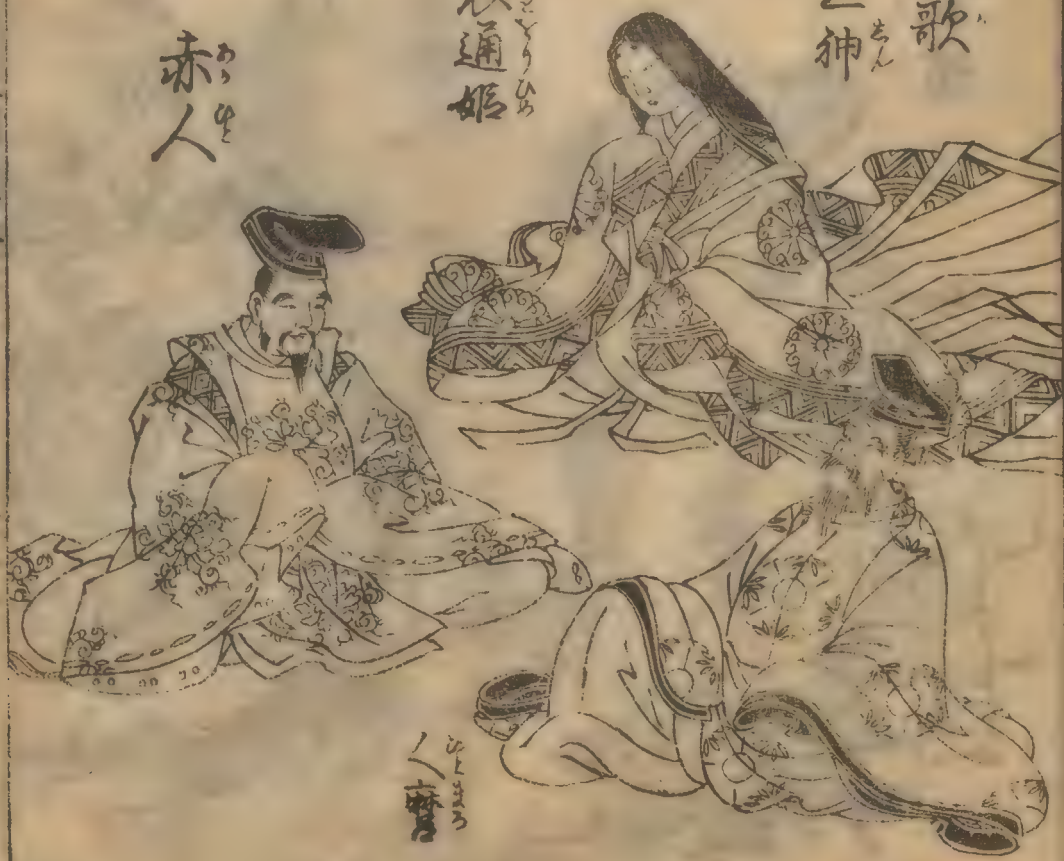 歌
三神
衣通姫
そとをりひめ
赤人
あかひと
人麿
ひとまろ